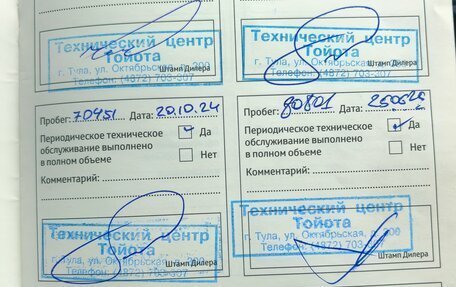 Технический центр
Тойота
г. Тула, ул. Октябрьская,
Телефон: (4872) 703-307
Штамп Дилера
Технический центр
Тойота
г. Тула, ул. Октябрьская, д. 300
Телефон: (4872) 703-307
Штамп Дилера
Пробег: 70951 Дата: 20.10.24
Периодическое техническое
обслуживание выполнено
в полном объеме
Да
Нет
Комментарий:
Технический центр
Тойота
г. Тула, ул. Октябрьская,
Телефон: (4872) 703-307
Штамп Дилера
Пробег: 80801 Дата:
Периодическое техническое
обслуживание выполнено
в полном объеме
Да
Нет
Комментарий:
Технический центр
Тойота
г. Тула, ул. Октябрьская,
Телефон: (4872)
Штамп Дилера